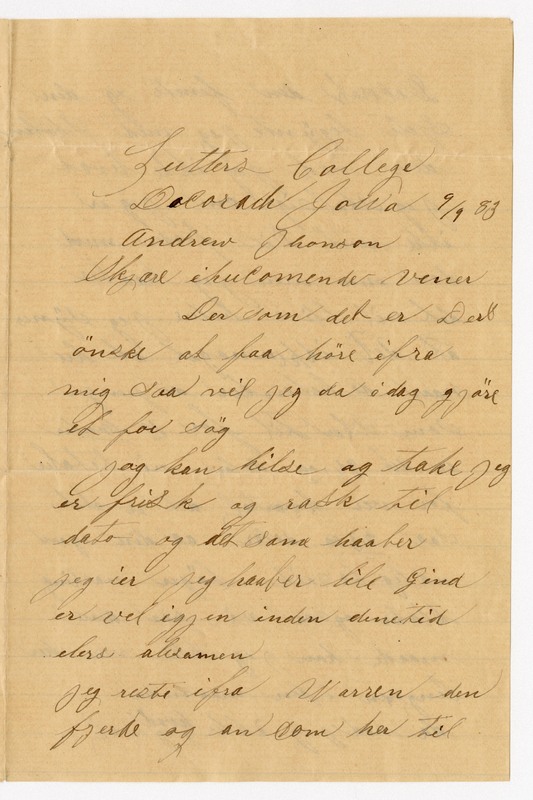 Lutters College
Docorach Jowa 9/9 83
Andrew Jhonson
Skjære ihucomende vener
Der som det er Ders
önske at faa höre ifra
mig saa vil jeg da idag gjöre
et for sög
jog kan hilse og take jeg
er frisk og rask til
dato og det same haaber
jeg ier jeg haaber lile Gind
er vel igjen inden denetid
elers alsamen
jeg reste ifra Warren den
fjerte og an com her til